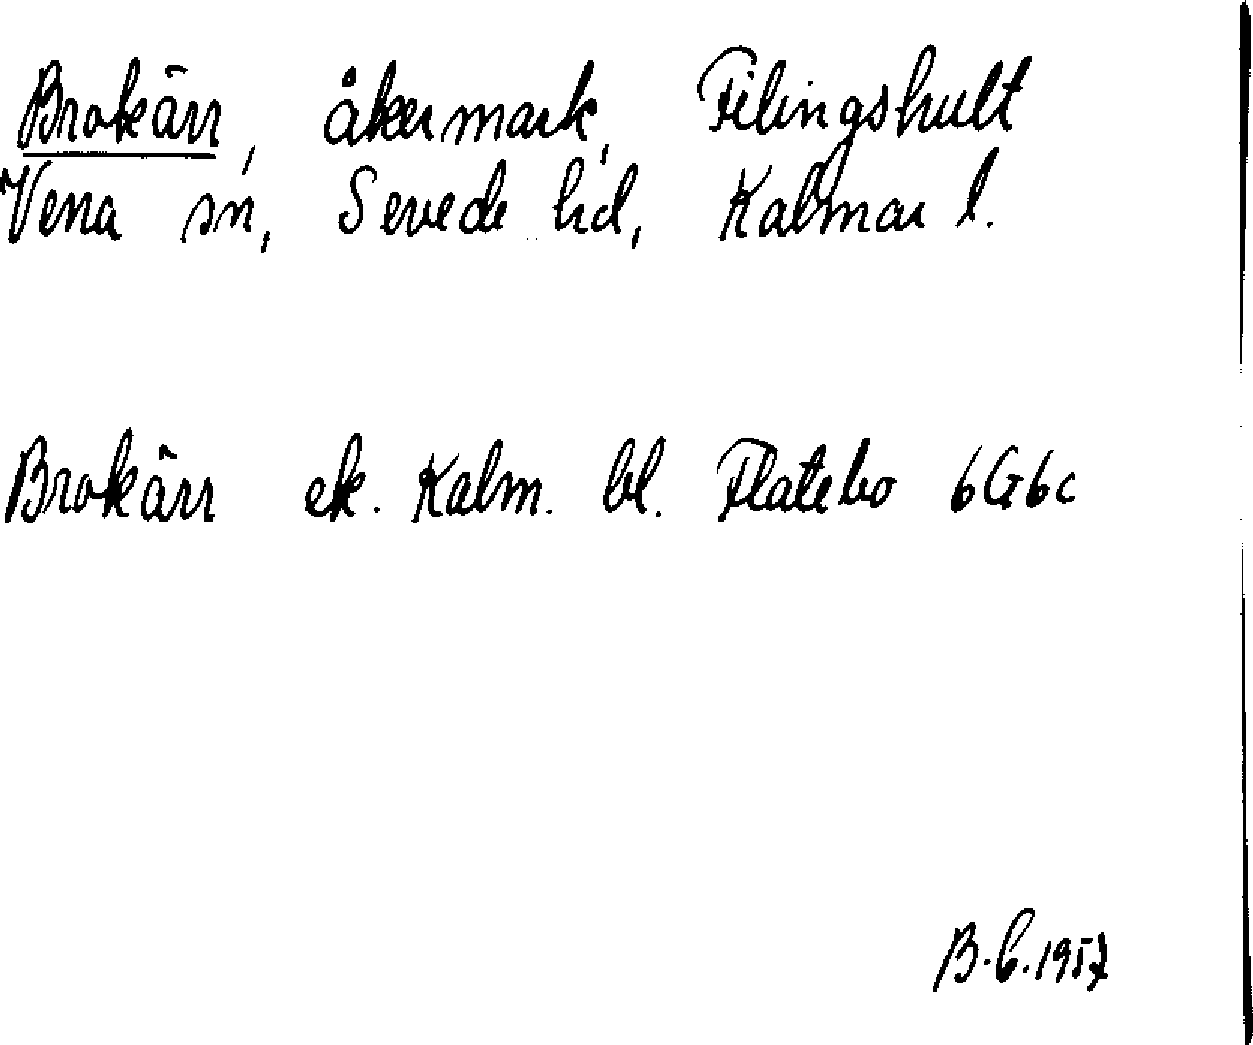 Brokärr, åkermark, Filingshult
Vena sn, Sevede hd, Kalmar l.
Brokärr ek. Kalm. bl. Flatebo 6G6c
B.G.1957